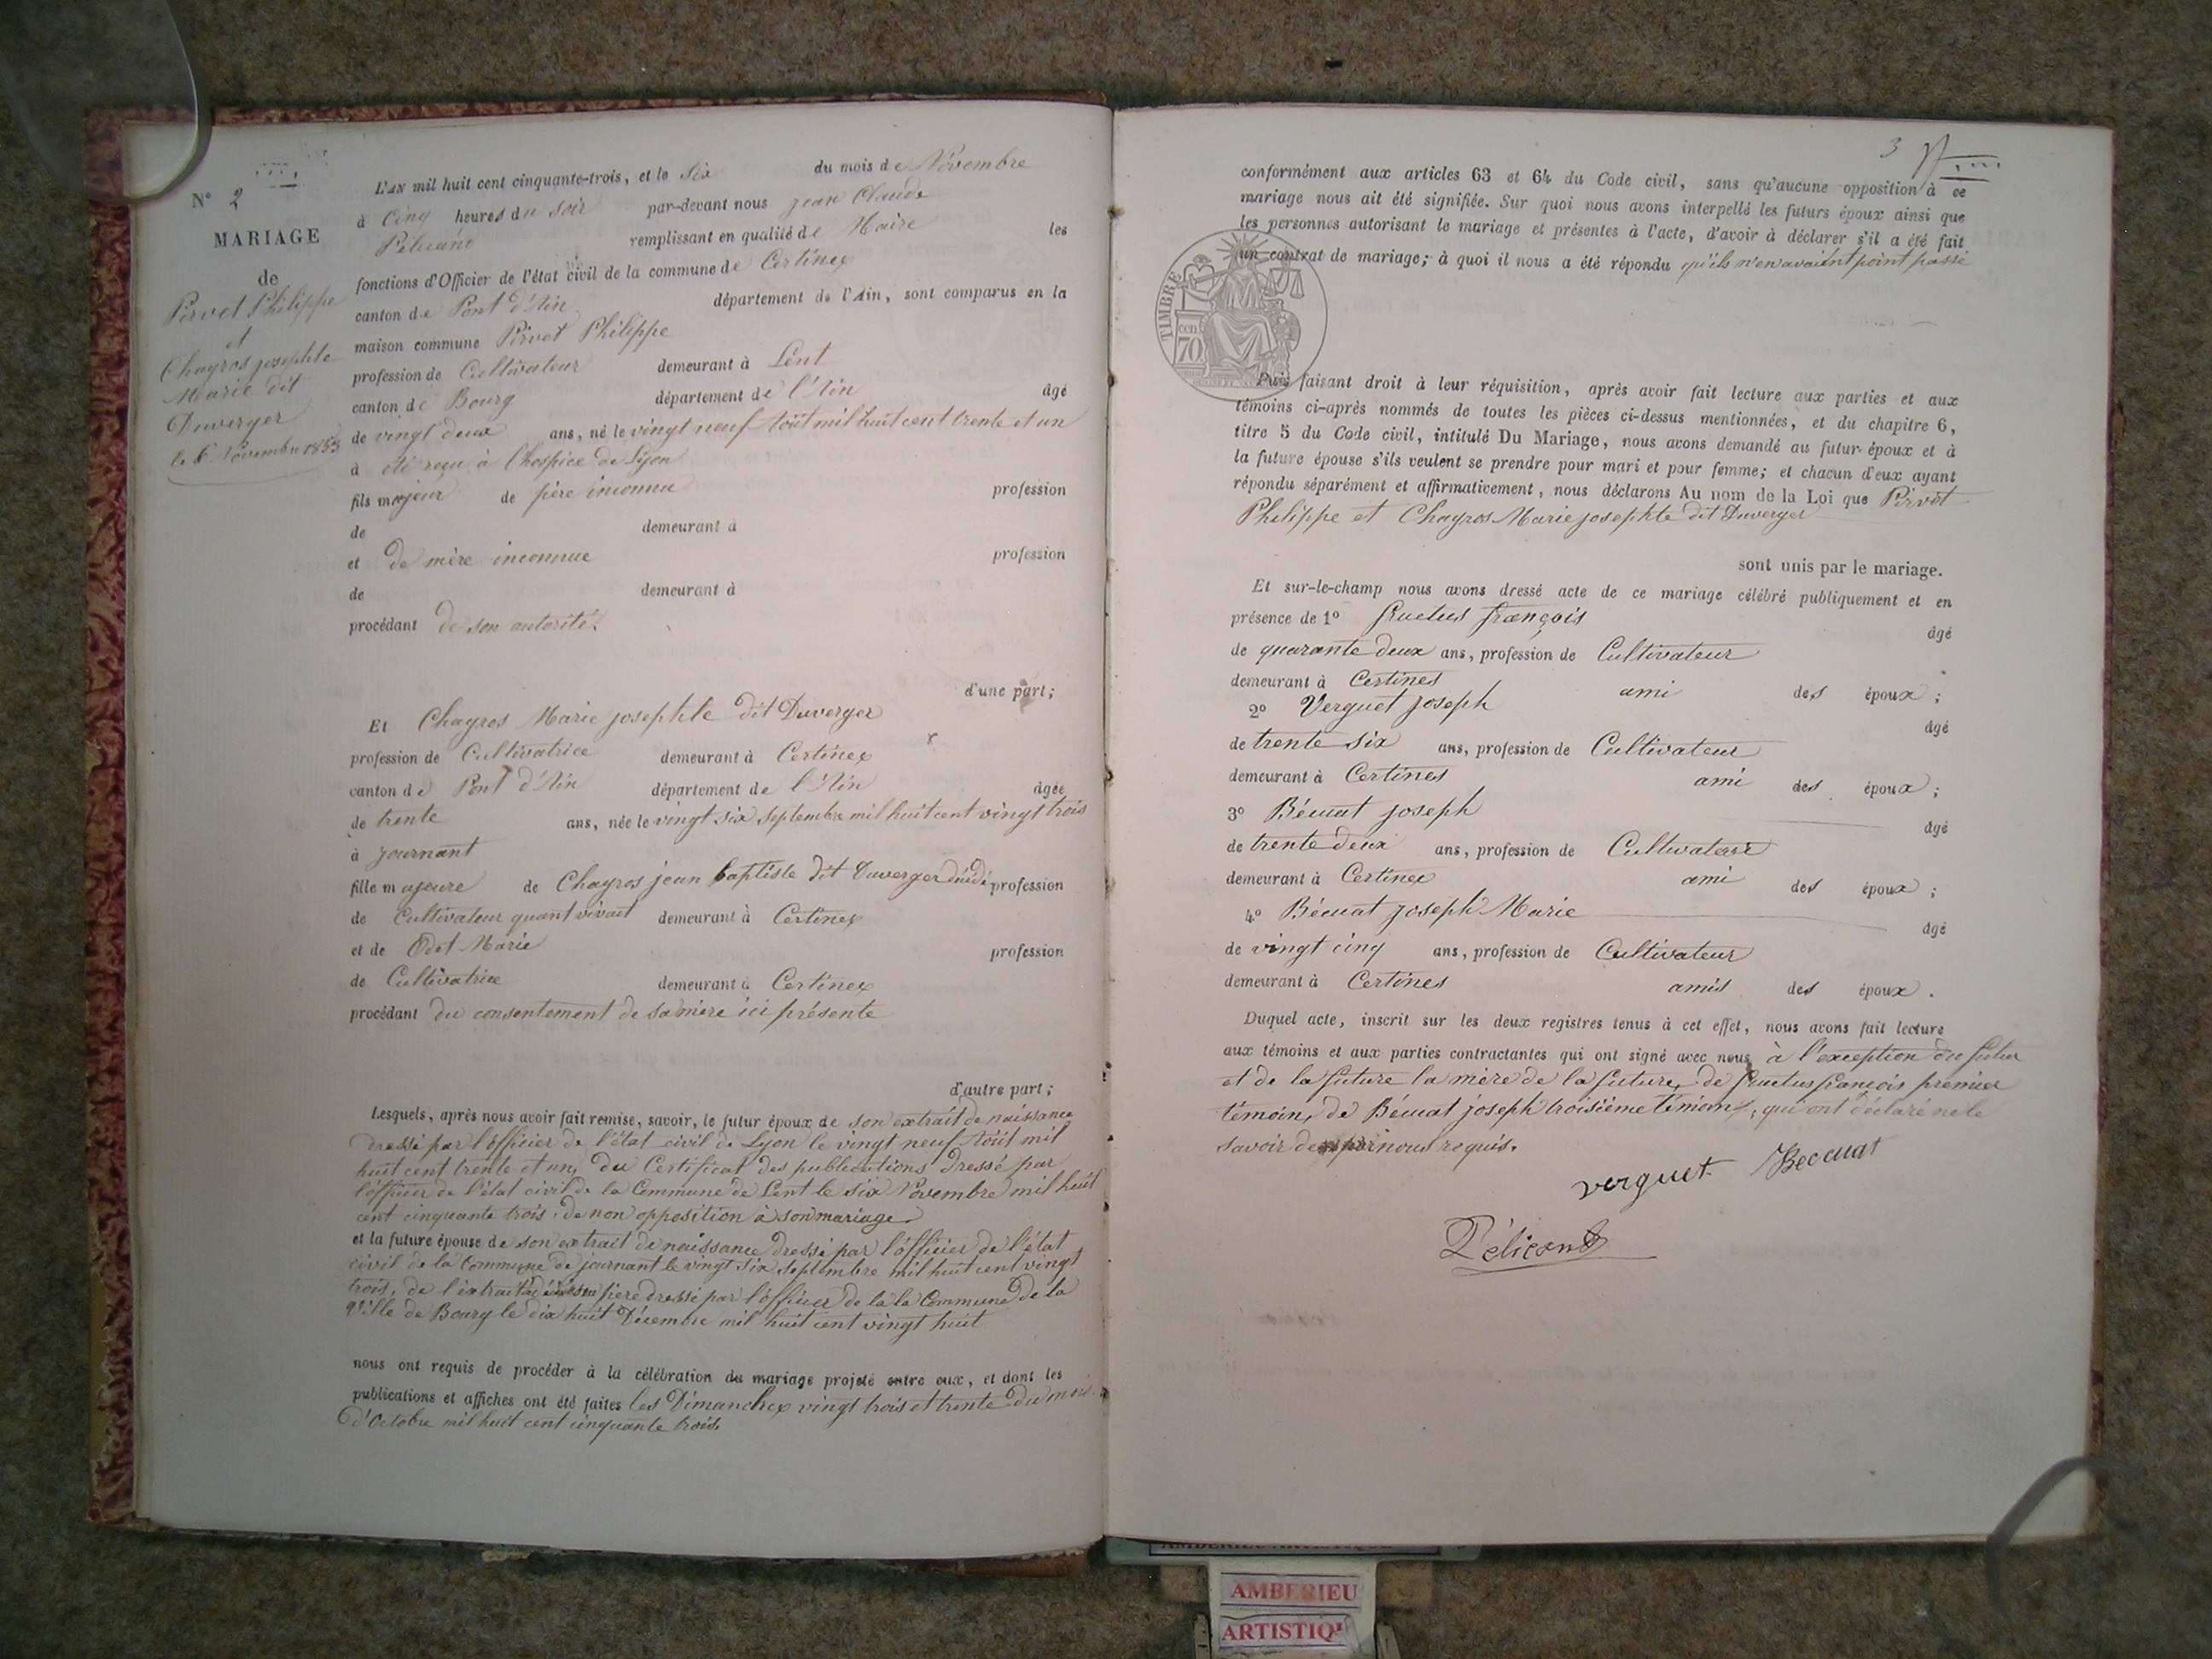 N° 2
MARIAGE
de
Pirvot Philippe
et
Chagros josephte
Marie dit
Duverger
le 6 Novembre 1853
L'AN mil huit cent cinquante-trois, et le Six du mois de Novembre
à Cinq heures du soir par-devant nous jean Claude
remplissant en qualité de Maire les
fonctions d'Officier de l'état civil de la commune de Certinex
canton de Pont d'Ain département de l'Ain, sont comparus en la
maison commune Pirvot Philippe
profession de Cultivateur demeurant à Lent
canton de Bourg département de l'Ain âgé
de vingt deux ans, né le vingt neuf Août mil huit cent trente et un
à été reçu à l'hospice de Lyon
fils majeur de père inconnu profession
de demeurant à
et de mère inconnue profession
de demeurant à
procédant de son autorité.
d'une part;
Et Chagros Marie josephte dit Duverger
profession de Cultivatrice demeurant à Certinex
canton de Pont d'Ain département de l'Ain âgée
de trente ans, née le vingt six septembre mil huit cent vingt trois
à journant
fille majeure de Chagros jean baptiste dit Duverger profession
de Cultivateur quant vivait demeurant à Certinex
et de Odet Marie profession
de Cultivatrice demeurant à Certinex
procédant du consentement de sa mère ici présente
d'autre part;
Lesquels, après nous avoir fait remise, savoir, le futur époux de son extrait de naissance
dressé par l'officier de l'état civil de Lyon le vingt neuf Août mil
huit cent trente et un, du Certificat des publications dressé par
l'officier de l'état civil de la Commune de Lent le six Novembre mil huit
cent cinquante trois, de non opposition à son mariage
et la future épouse de son extrait de naissance dressé par l'officier de l'état
civil de la Commune de journant le vingt six septembre mil huit cent vingt
trois, de l'extrait père dressé par l'officier de la la Commune de la
Ville de Bourg le dix huit Décembre mil huit cent vingt huit
nous ont requis de procéder à la célébration du mariage projeté entre eux, et dont les
publications et affiches ont été faites les Dimanchex vingt trois et trente du mois
d'Octobre mil huit cent cinquante trois.
3
conformément aux articles 63 et 64 du Code civil, sans qu'aucune opposition à ce
mariage nous ait été signifiée. Sur quoi nous avons interpellé les futurs époux ainsi que
les personnes autorisant le mariage et présentes à l'acte, d'avoir à déclarer s'il a été fait
un contrat de mariage; à quoi il nous a été répondu qu'ils n'en avaient point passé
TIMBRE
cen
70
Puis faisant droit à leur réquisition, après avoir fait lecture aux parties et aux
témoins ci-après nommés de toutes les pièces ci-dessus mentionnées, et du chapitre 6,
titre 5 du Code civil, intitulé Du Mariage, nous avons demandé au futur époux et à
la future épouse s'ils veulent se prendre pour mari et pour femme; et chacun d'eux ayant
répondu séparément et affirmativement, nous déclarons Au nom de la Loi que Pirvot
Philippe et Chagros Marie josephte dit Duverger
sont unis par le mariage.
Et sur-le-champ nous avons dressé acte de ce mariage célébré publiquement et en
présence de 1° fructus françois âgé
de quarante deux ans, profession de Cultivateur
demeurant à Certines ami des époux;
2° Verguet joseph âgé
de trente six ans, profession de Cultivateur
demeurant à Certines ami des époux;
3° Bécuat joseph âgé
de trente deux ans, profession de Cultivateur
demeurant à Certinex ami des époux;
4° Bécuat joseph Marie âgé
de vingt cinq ans, profession de Cultivateur
demeurant à Certines amis des époux.
Duquel acte, inscrit sur les deux registres tenus à cet effet, nous avons fait lecture
aux témoins et aux parties contractantes qui ont signé avec nous à l'exception du futur
et de la future la mère de la future, de fructus françois premier
témoin, de Bécuat joseph troisième témoin, qui ont déclaré ne le
savoir de nous requis.
verguet Beccuat
Pélicant
AMBERIEU
ARTISTIQ